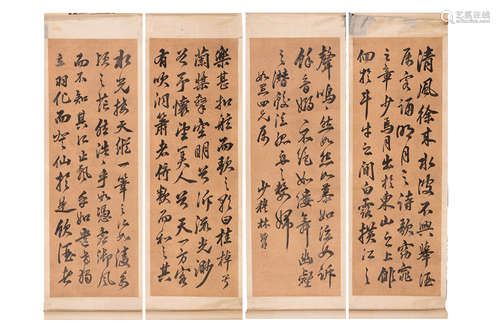 清風徐来水波不興舉酒
属客誦明月之詩歌窈窕
之章少焉月出於東山之上徘
徊於斗牛之間白露橫江
水光接天縱一葦之所如凌萬
頃之茫然浩浩乎如憑虛御風
而不知其所止飄飄乎如遺世獨
立羽化而登仙於是飲酒
樂甚扣舷而歌之歌曰桂棹兮
蘭槳擊空明兮泝流光渺
渺兮予懷望美人兮天一方客
有吹洞簫者倚歌而和之其
聲嗚嗚然如怨如慕如泣如訴
餘音嫋嫋不絕如縷舞幽壑
之潛蛟泣孤舟之嫠婦
四兄屬
少穆林